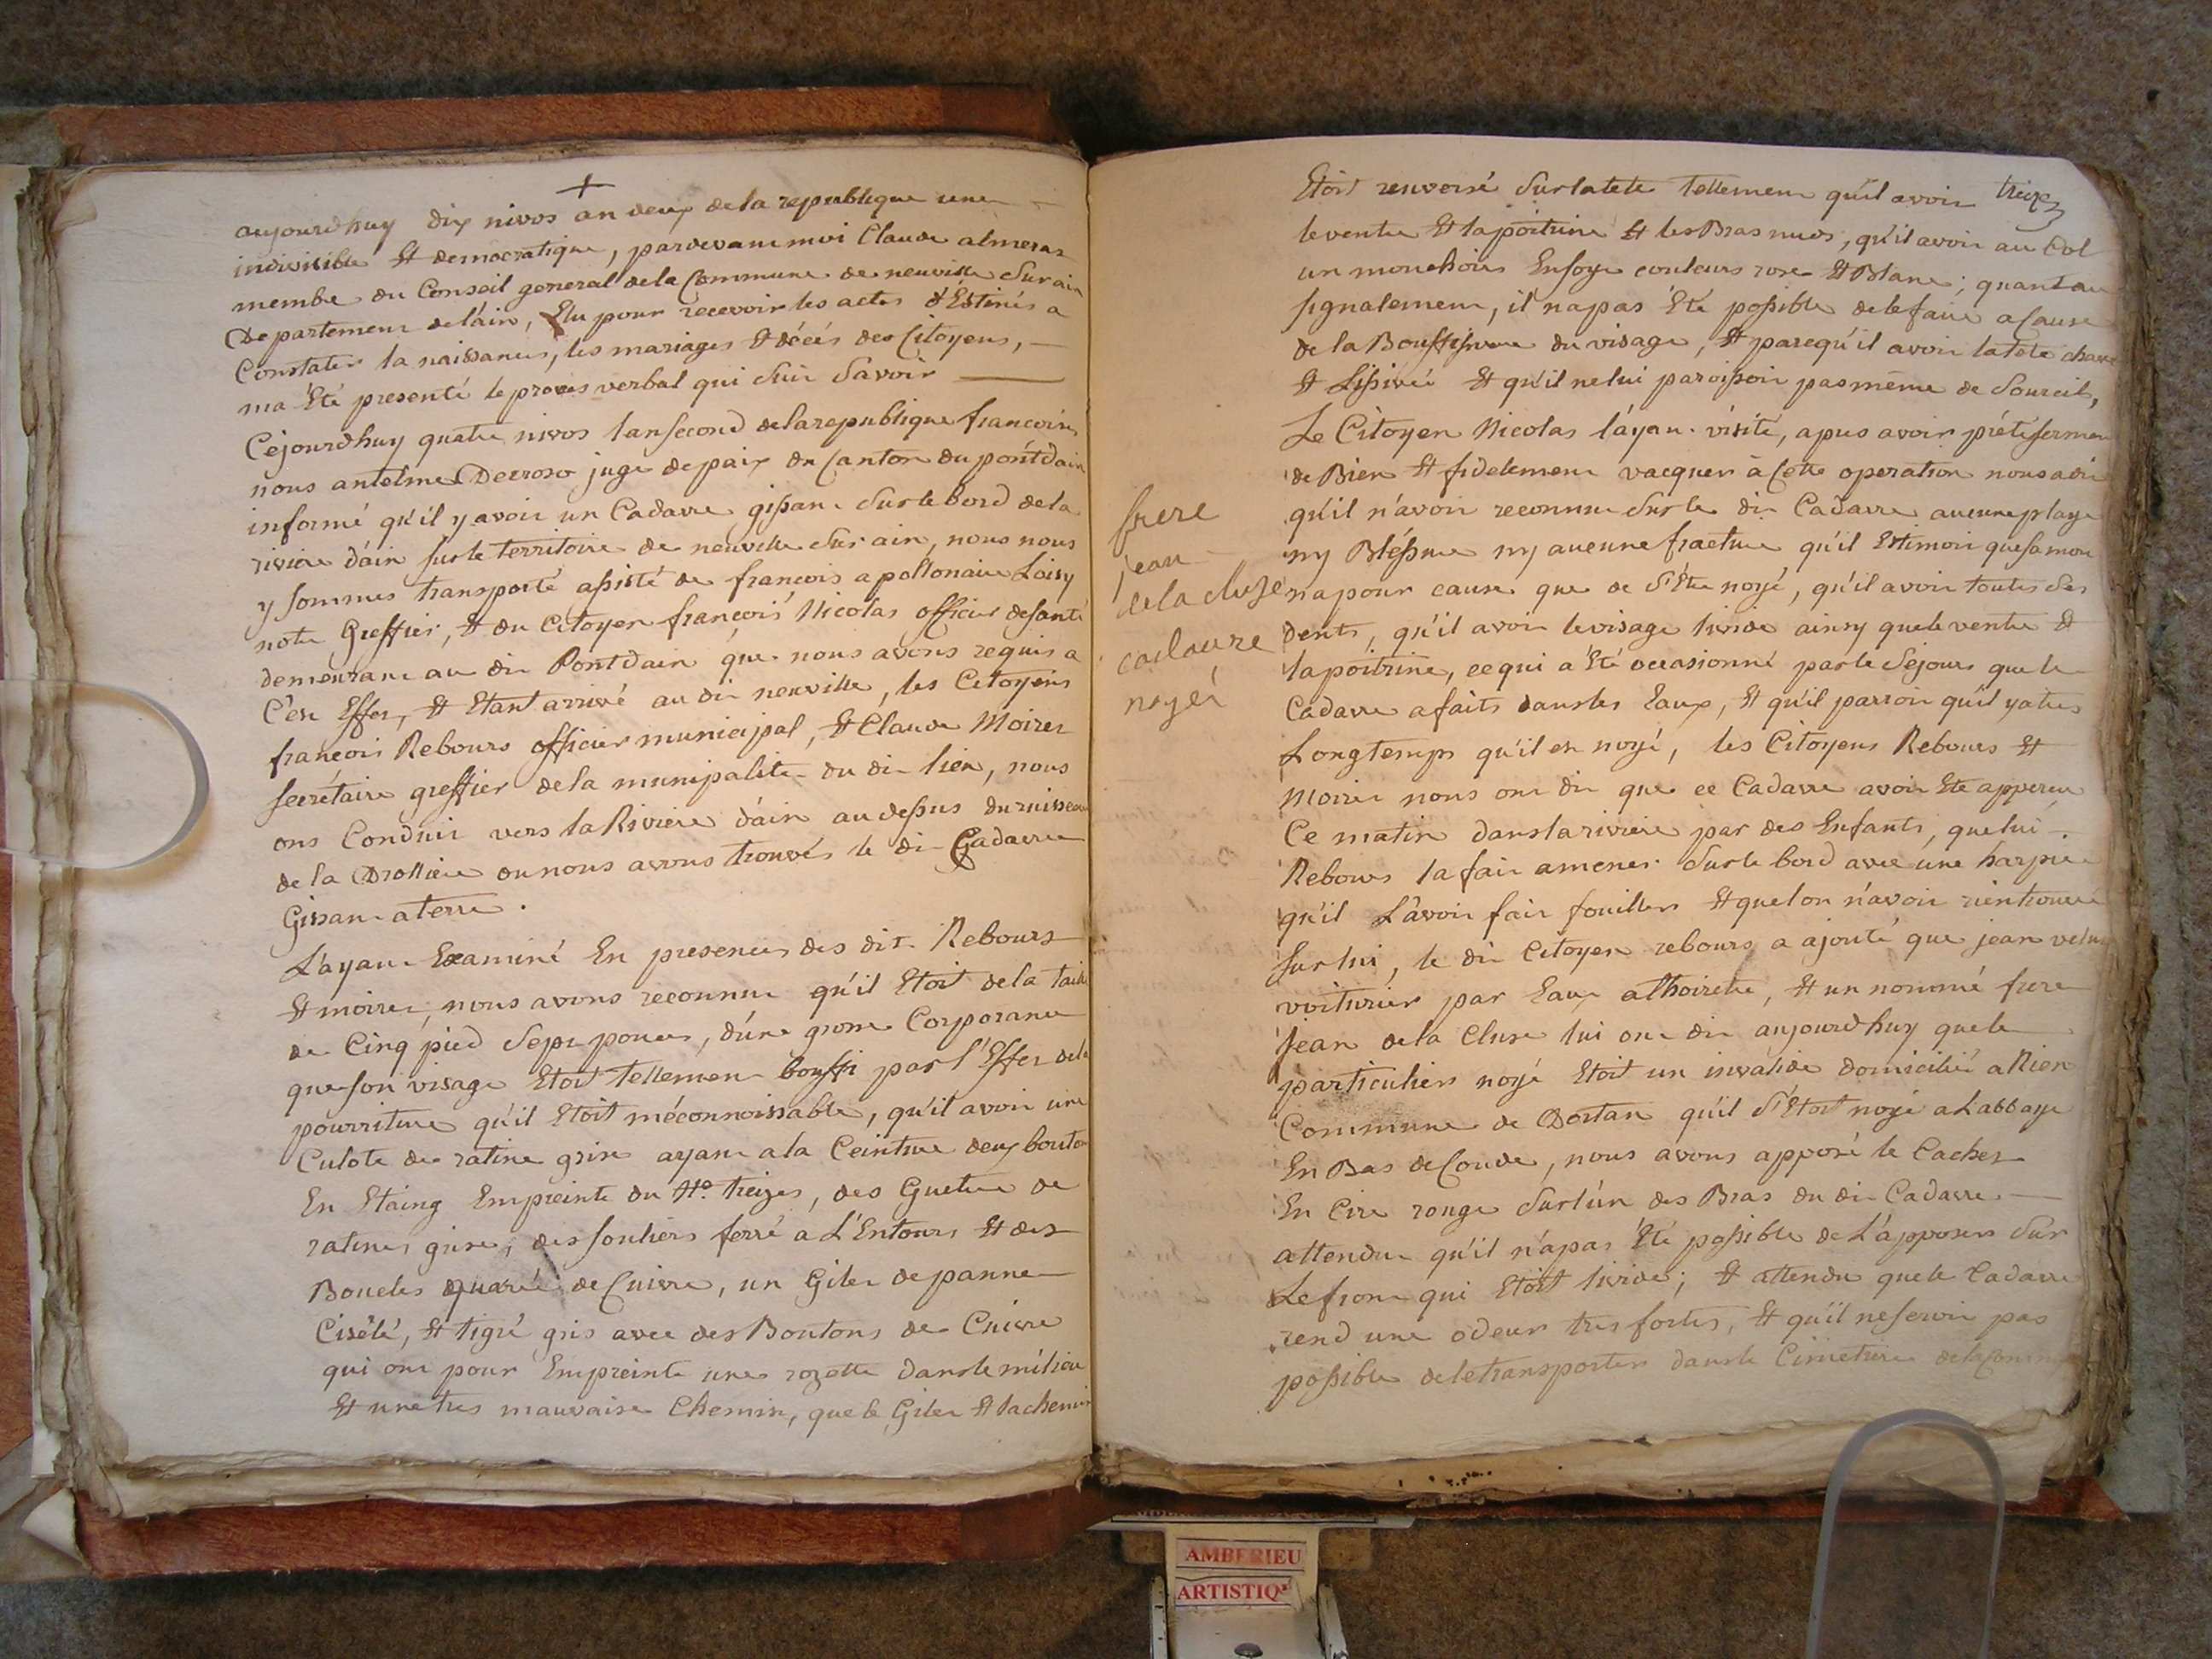 aujourdhuy dix nivos an deux de la republique une
indivisible Et democratique, pardevant moi Claude almeras
membe du Conseil general de la Commune de neuville Sur ain
Departement de l'áin, Elu pour recevoir les actes d'Éstinés a
Constater la naissances, les mariages Et décés des Citoyens,
ma Eté presenté le procès verbal qui Suit Savoir
Céjourdhuy quatre nivos lan second de la republique francoise
nous antelme Decroso juge de paix du Canton du pontdain
informé qu'il y avoit un Cadavre gissant Sur le bord de la
riviere d'ain sur le territoire de neuville Sur ain, nous nous
y sommes transporté assisté de francois apollonaire Loisy
note Greffier, Et du Citoyen francois Nicolas officier de santé
demeurant au dit Pontdain que nous avons requis a
C'et Effet, Et Etant arrivé au dit neuville, les Citoyens
francois Rebours officier municipal, Et Claude Moiret
secrétaire greffier de la municipalite du dit lieu, nous
ons Conduit vers la Riviere d'áin au dessus du ruisseau
de la Drolliere ou nous avons trouvés le dit Cadavre
Gissant a terre.
L'ayant Examiné En presences des dit Rebours
Et moiret, nous avons reconnu qu'il Etoit de la taille
de Cinq pied Sept pouces, d'úne grosse Corporance
que son visage Etoit tellement bouffi par l'Effet de la
pourriture qu'il Etoit méconnoissable, qu'il avoit une
Culote de ratine grise ayant a la Ceinture deux bouton
En Etaing Empreinte du No. treizes, des Guetre de
ratines grise, des souliers ferré a L'Entours Et des
Boucles quarré de Cuivre, un Gilet de panne
Cisélé, Et tigré gris avec des Boutons de Cuivre
qui ont pour Empreinte une rozette dans le milieu
Et une tres mauvaise Chemise, que le Gilet Et la chemise
treize
Etoit renversé Sur la tete tellement qu'il avoit
le ventre Et la poitrine Et les Bras nuds, qu'il avoit au Col
un mouchoir En soye couleurs rose Et Blanc; quant au
signalement, il n'a pas Eté possible de le faire a Cause
de la Bouffissure du visage, Et parcqu'il avoit la tete chauve
Et Lissivée Et qu'il ne lui paroissoit pas même de Sourcils,
Le Citoyen Nicolas l'áyant visité, apres avoir prété serment
de Bien Et fidelement vacquer à Cette operation nous a dit
qu'il n'avoit reconnu Sur le dit Cadavre aucune playe
ny Bléssure ny aucunne fracture qu'il Estimoit que sa mort
n'a pour cause que de S'Etre noyé, qu'il avoit toutes Ses
dents, qu'il avoit le visage livide ainsy que le ventre Et
la poitrine, ce qui a Eté occasionné par le Séjours que le
Cadavre a faits dans les Eaux, Et qu'il parroit qu'il y a tres
Longtemps qu'il est noyé, les Citoyens Rebours Et
Moiret nous ont dit que ce Cadavre avoit Eté apperçu
Ce matin dans la riviere par des Enfants, que lui
Rebours la fait amener Sur le bord avec une harpie
qu'il L'avoit fait fouiller Et quel on n'avoit rien trouvé
sur lui, le dit Citoyen rebours a ajouté que jean velu
voiturier par Eaux a thoirette, Et un nommé frere
Jean de la Cluse lui ont dit aujourdhuy que le
particuliers noyé Etoit un invalide domicilié a Rien
Commune de Dortan qu'il S'Etoit noyé a Labbaye
En Bas de Conde, nous avons apposé le Cachet
En Cire rouge Sur l'ún des Bras du dit Cadavre
attendu qu'il n'a pas Eté possible de L'apposer Sur
Le front qui Etoit livide; Et attendu que le Cadavre
rend une odeur tres fortes, Et qu'il ne seroit pas
possible de le transporter dans le Cimetiere de la Commune
frere
jean
de la cluse
cadavre
noyé
AMBERIEU
ARTISTIQ